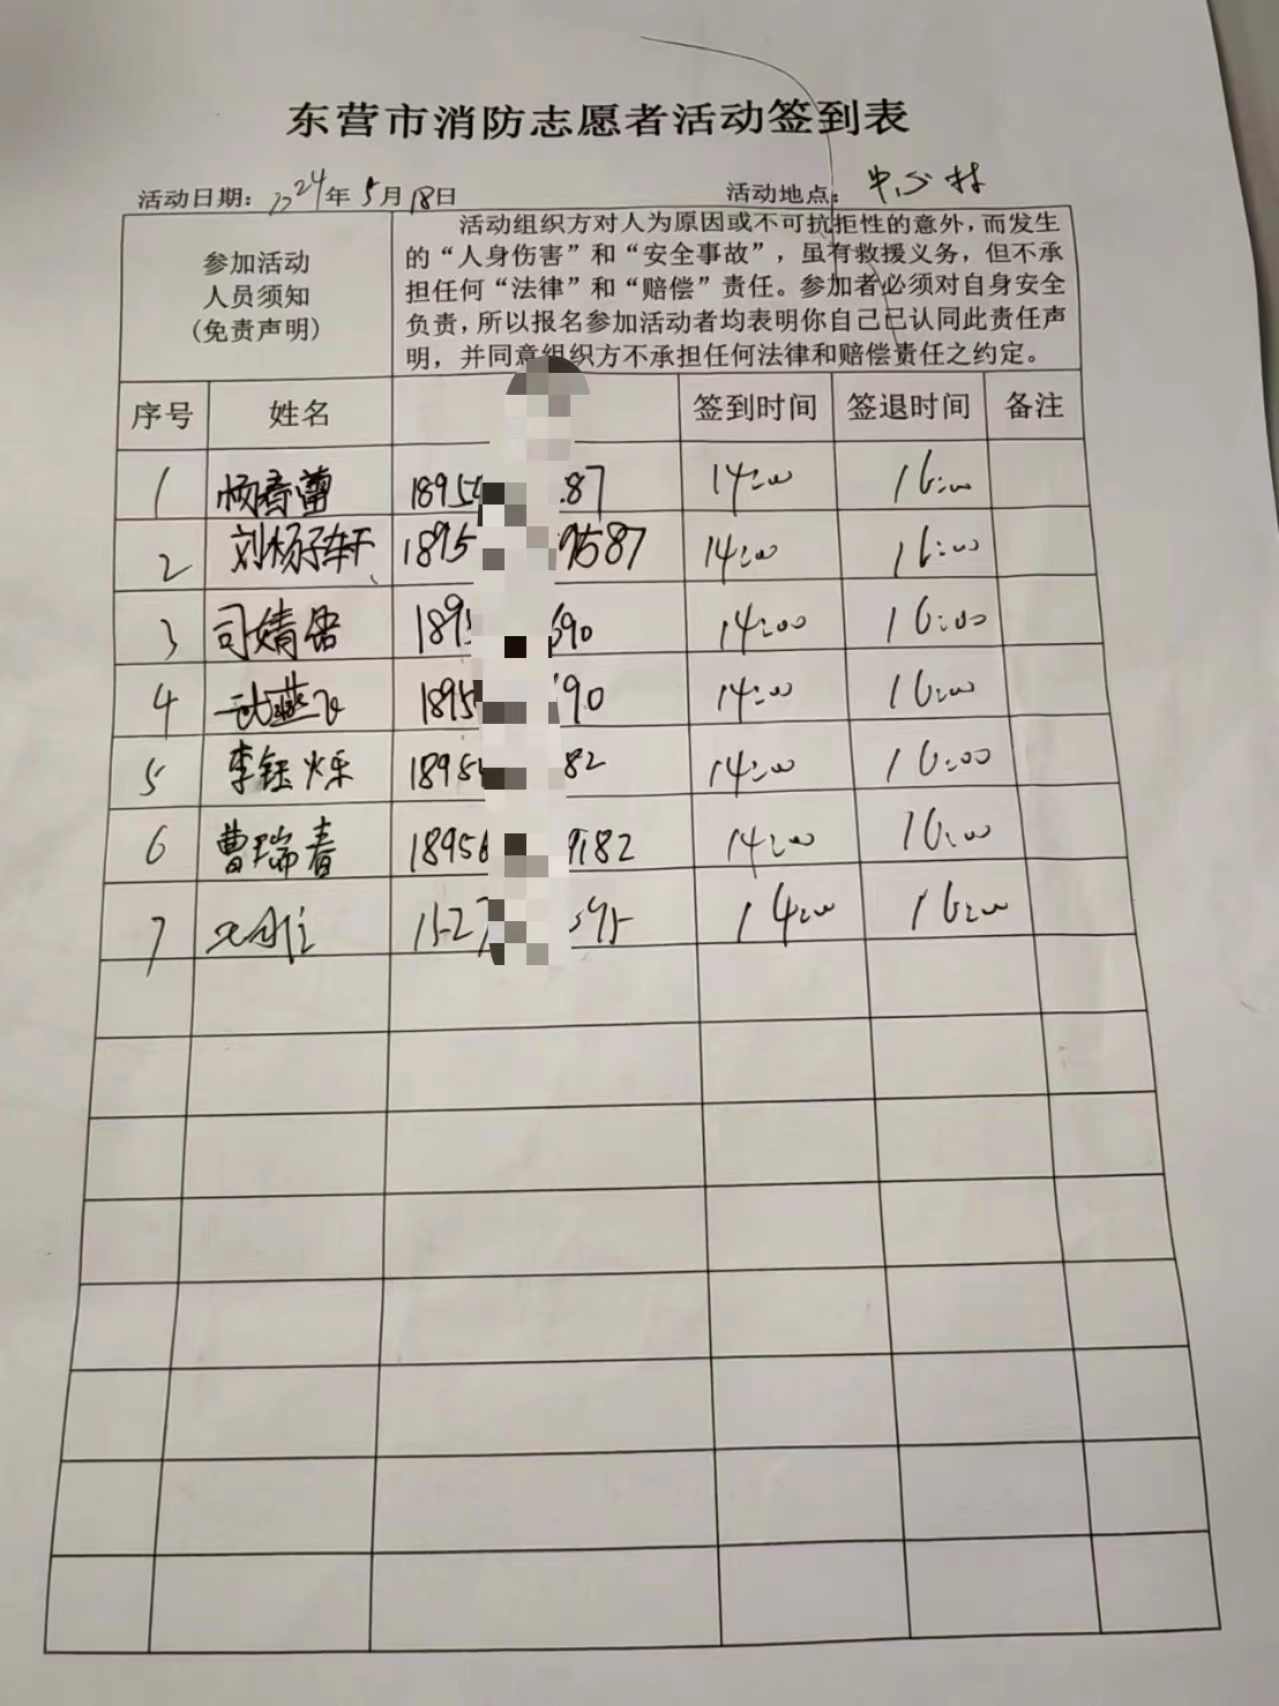 东营市消防志愿者活动签到表
活动日期：2024年5月18日 活动地点：中心村
参加活动
人员须知
(免责声明)
活动组织方对人为原因或不可抗拒性的意外，而发生
的“人身伤害”和“安全事故”，虽有救援义务，但不承
担任何“法律”和“赔偿”责任。参加者必须对自身安全
负责，所以报名参加活动者均表明你自己已认同此责任声
明，并同意组织方不承担任何法律和赔偿责任之约定。
序号 姓名 签到时间 签退时间 备注
1 杨春蕾 1895 87 14:00 16:00
2 刘杨子轩 1895 9587 14:00 16:00
3 司婧 189 690 14:00 16:00
4 武燕飞 1895 90 14:00 16:00
5 李钰烁 1895 82 14:00 16:00
6 曹瑞春 18956 9182 14:00 16:00
7 1527 595 14:00 16:00